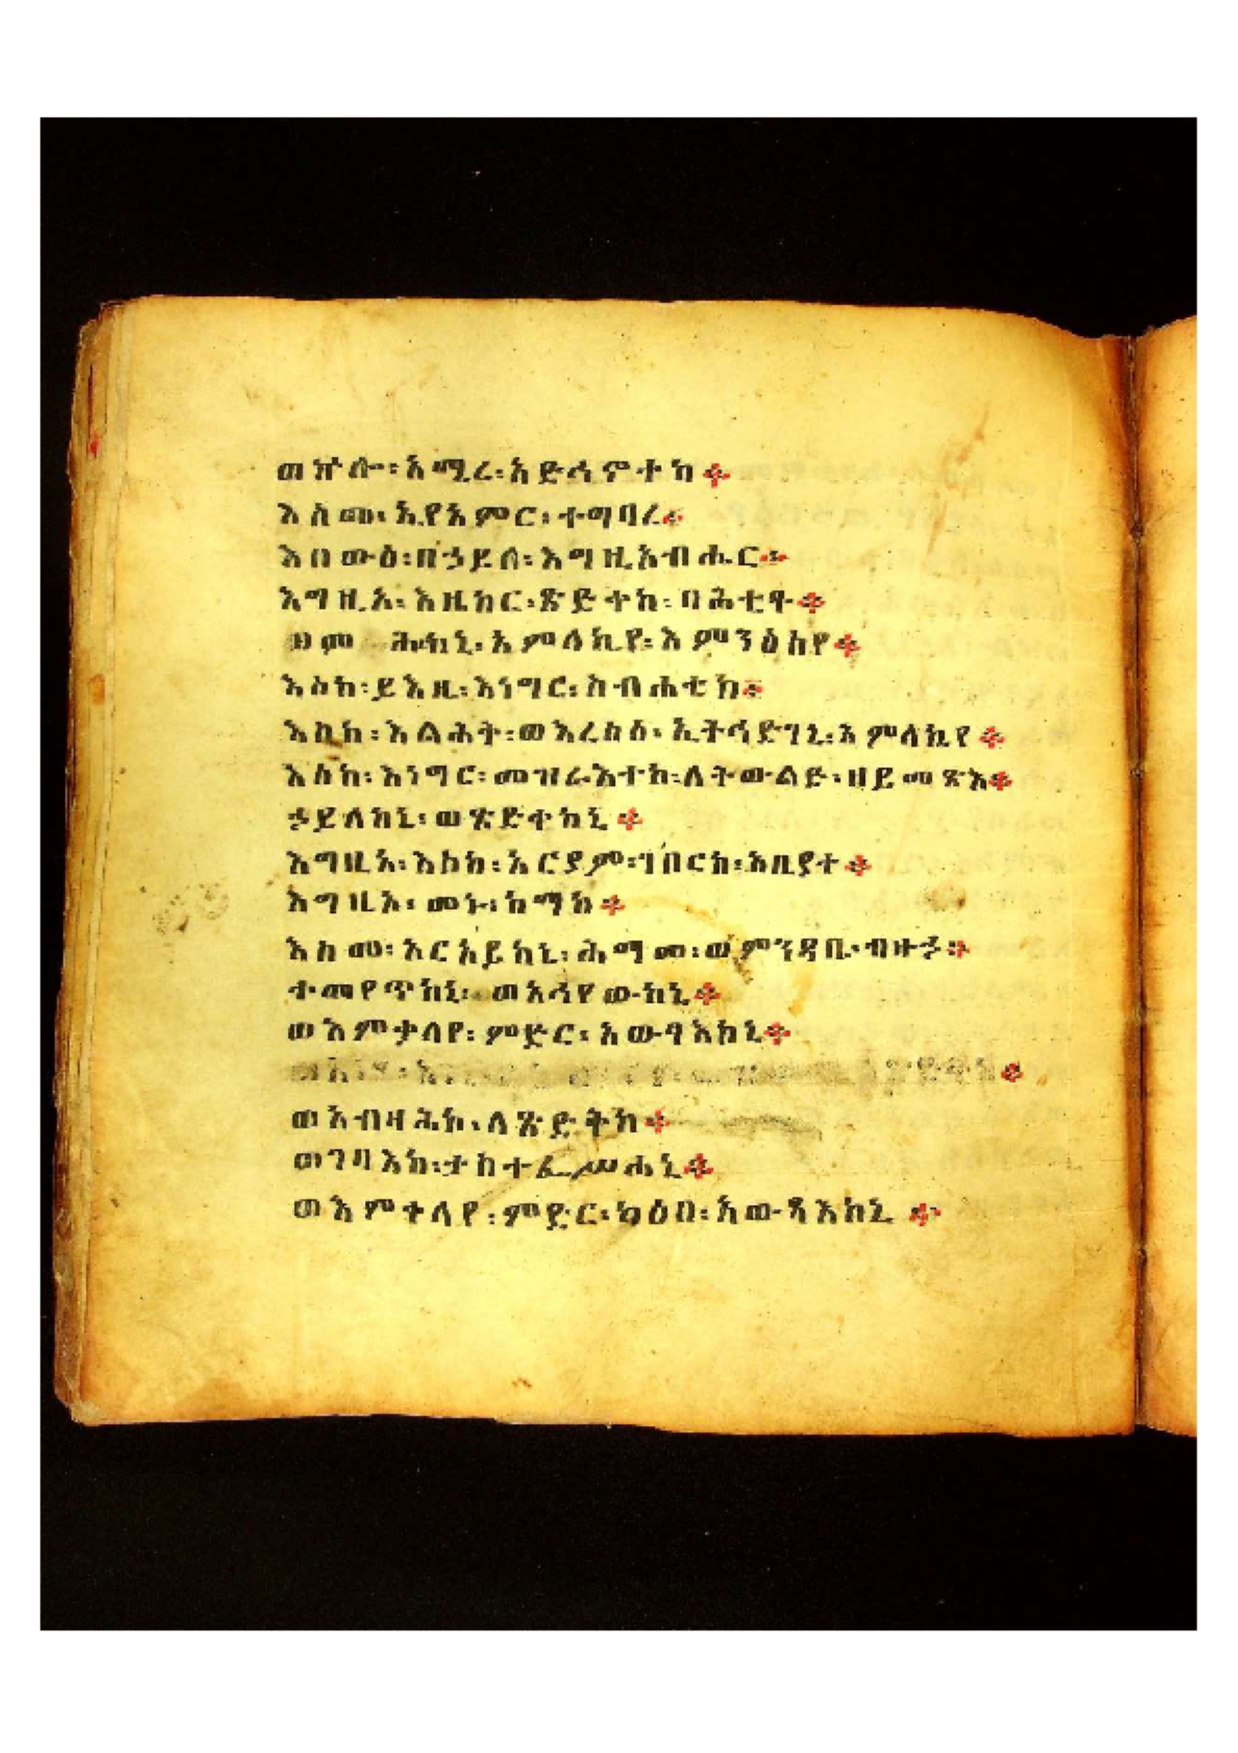 ወኵሎ፡አሚረ፡አድኅኖተከ፨
እስመ፡ኢየአምር፡ተግባረ፨
እበውዕ፡በኃይለ፡እግዚአብሔር፨
እግዚኦ፡እዜከር፡ጽድቀከ፡ባሕቲቶ፨
ሕከኒ፡አምላኪየ፡እምንዕስየ፨
እስከ፡ይእዜ፡እነግር፡ስብሐቲከ፨
እስከ፡እልሕቅ፡ወእረስዕ፡ኢትኅድገኒ፡አምላኪየ፨
እስከ፡እነግር፡መዝራእተከ፡ለትውልድ፡ዘይመጽእ፨
ኃይለከኒ፡ወጽድቀከኒ፨
እግዚኦ፡እስከ፡አርያም፡ገበርከ፡ዐቢያተ፨
እግዚኦ፡መኑ፡ከማከ፨
እስመ፡አርአይከኒ፡ሕማመ፡ወምንዳቤ፡ብዙኃ፨
ተመየጥከኒ፡ወአሕየውከኒ፨
ወእምቀላየ፡ምድር፡አውጻእከኒ፨
ወአብዛሕከ፡ለጽድቅከ፨
ወገባእከ፡ታከተፈሥሐኒ፨
ወእምቀላየ፡ምድር፡ካዕበ፡አውጻእከኒ፨